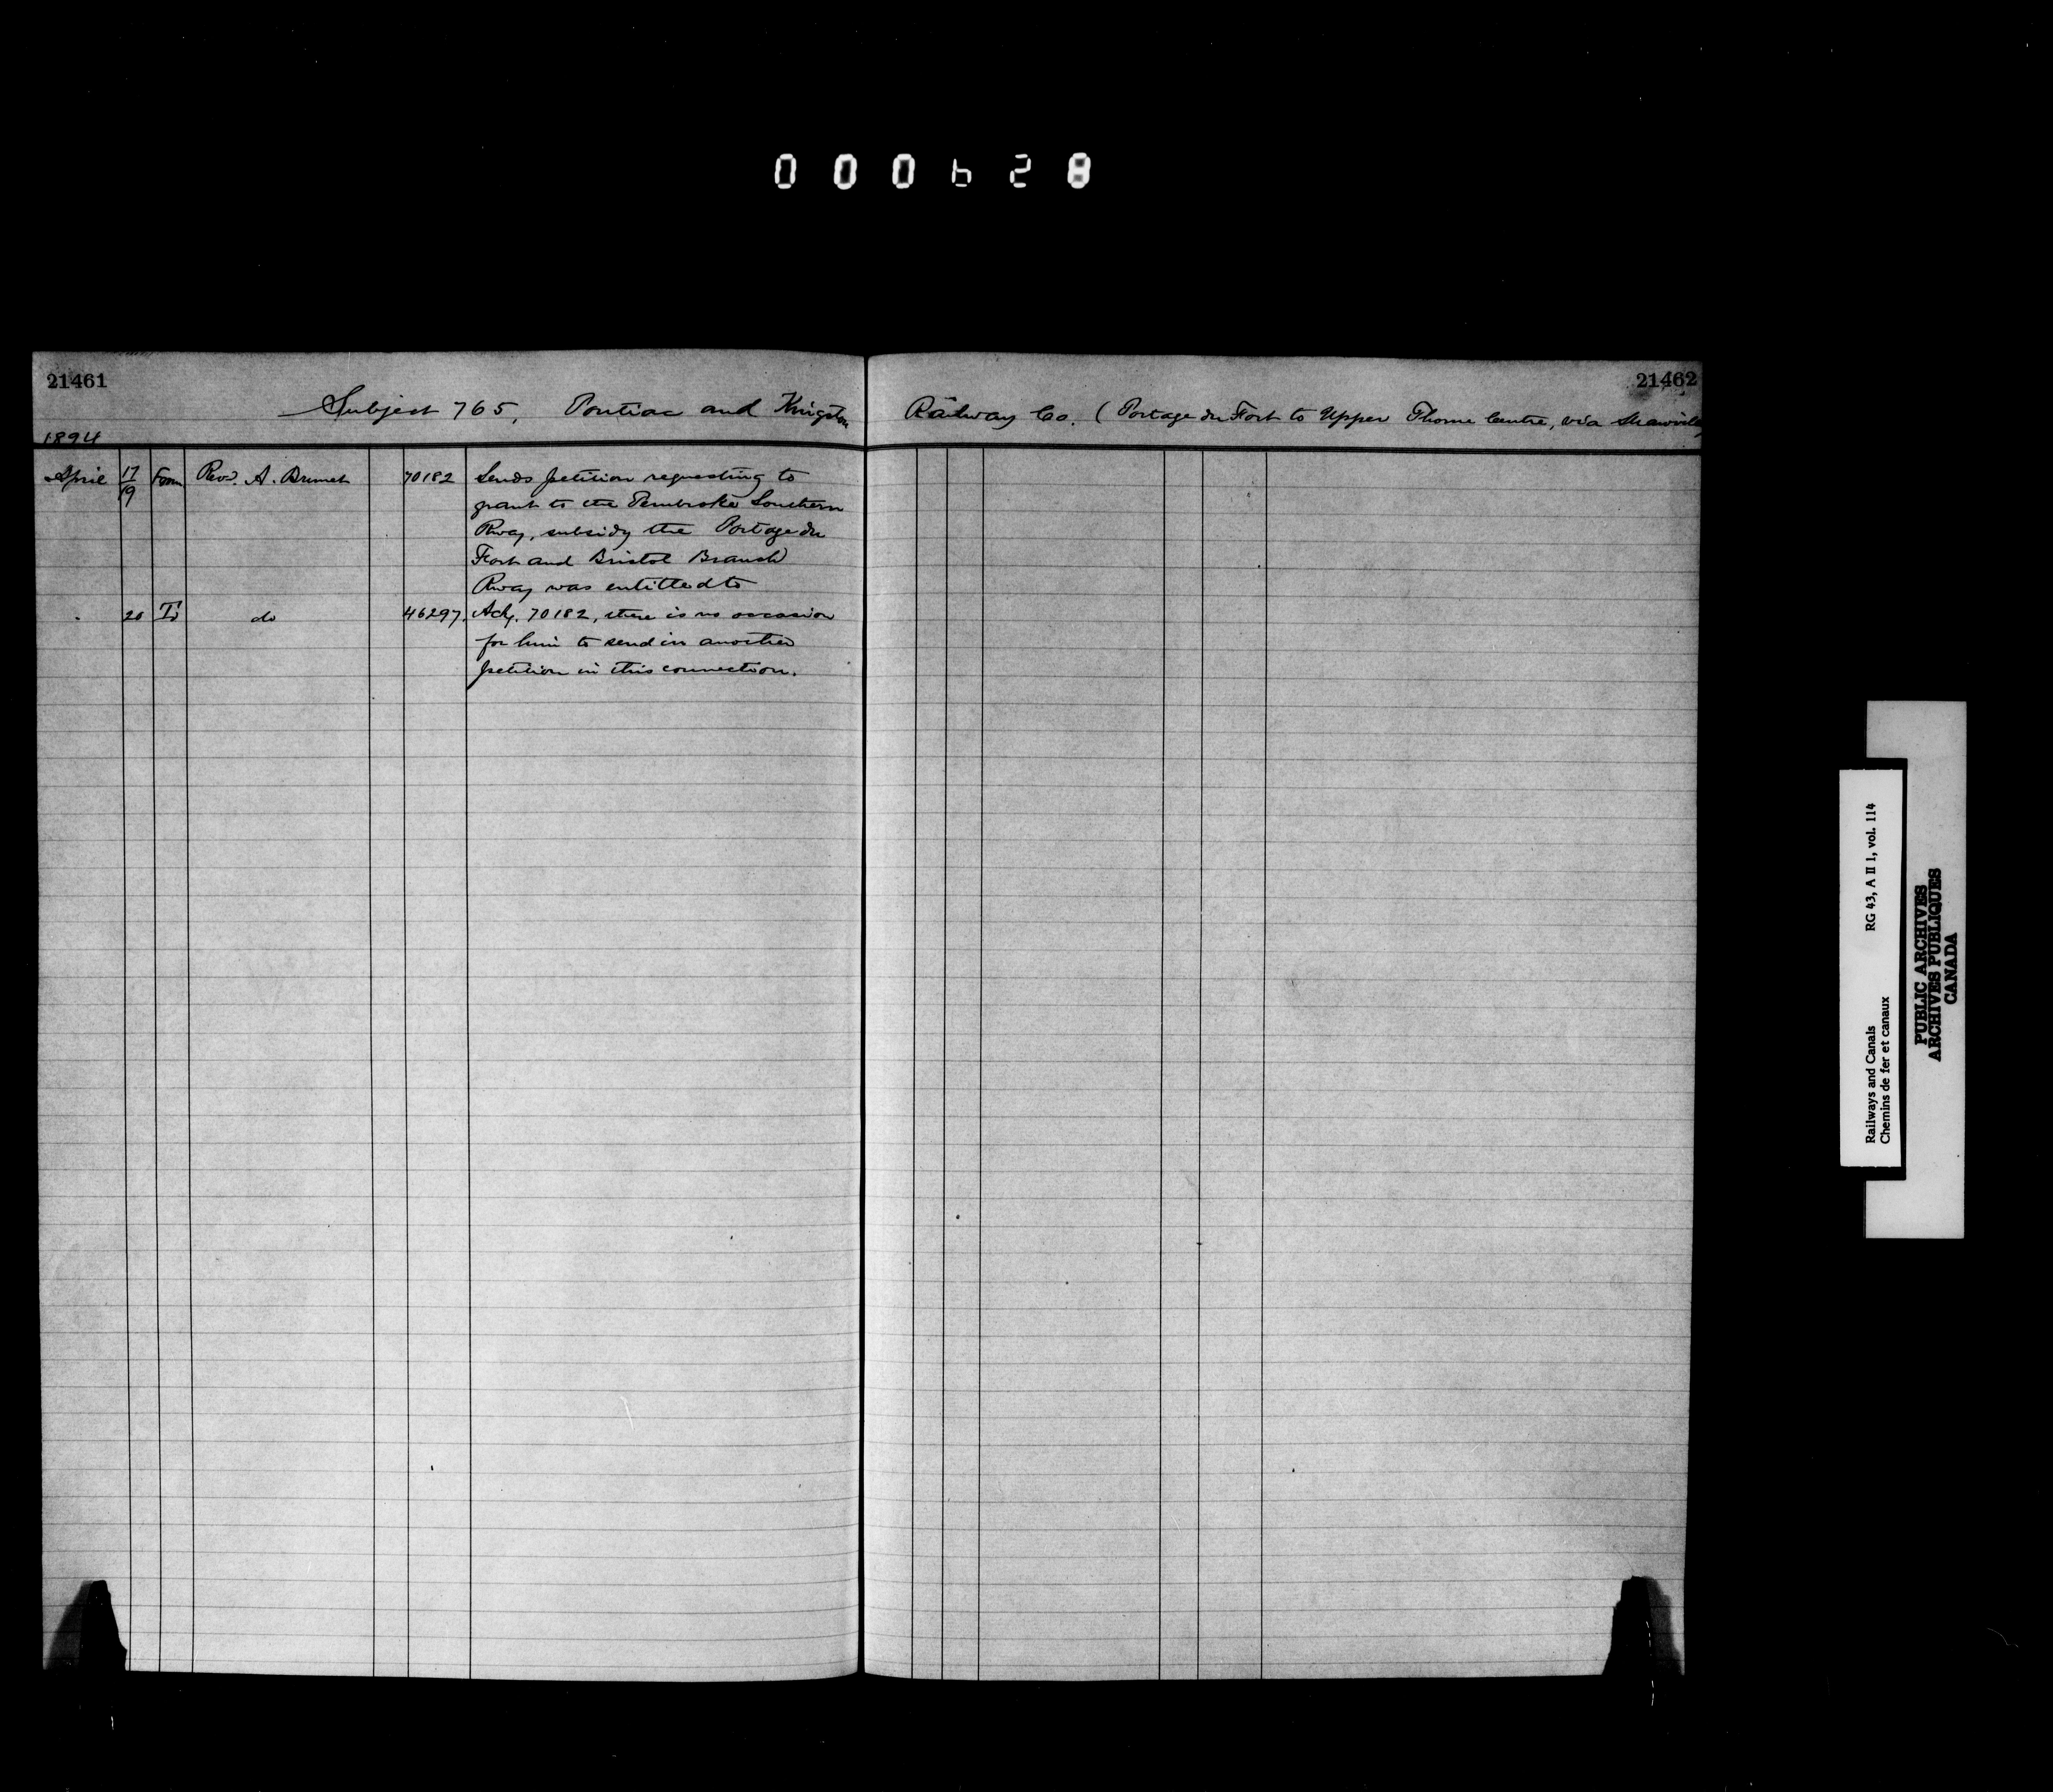 000628
21461
21462
Subject 765, Pontiac and Kingston Railway Co. (Portage du Fort to Upper Thorne Centre, via Shawville)
1894
April 17/19 From Revd. A. Brunet 70182 Sends petition requesting to
grant to the Pembroke Southern
Rway, subsidy the Portage du
Fort and Bristol Branch
Rway was entitled to
" 20 To do 46297. Ackg. 70182, there is no occasion
for him to send in another
petition in this connection.
Railways and Canals RG 43, A II 1, vol. 114
Chemins de fer et canaux
PUBLIC ARCHIVES
ARCHIVES PUBLIQUES
CANADA